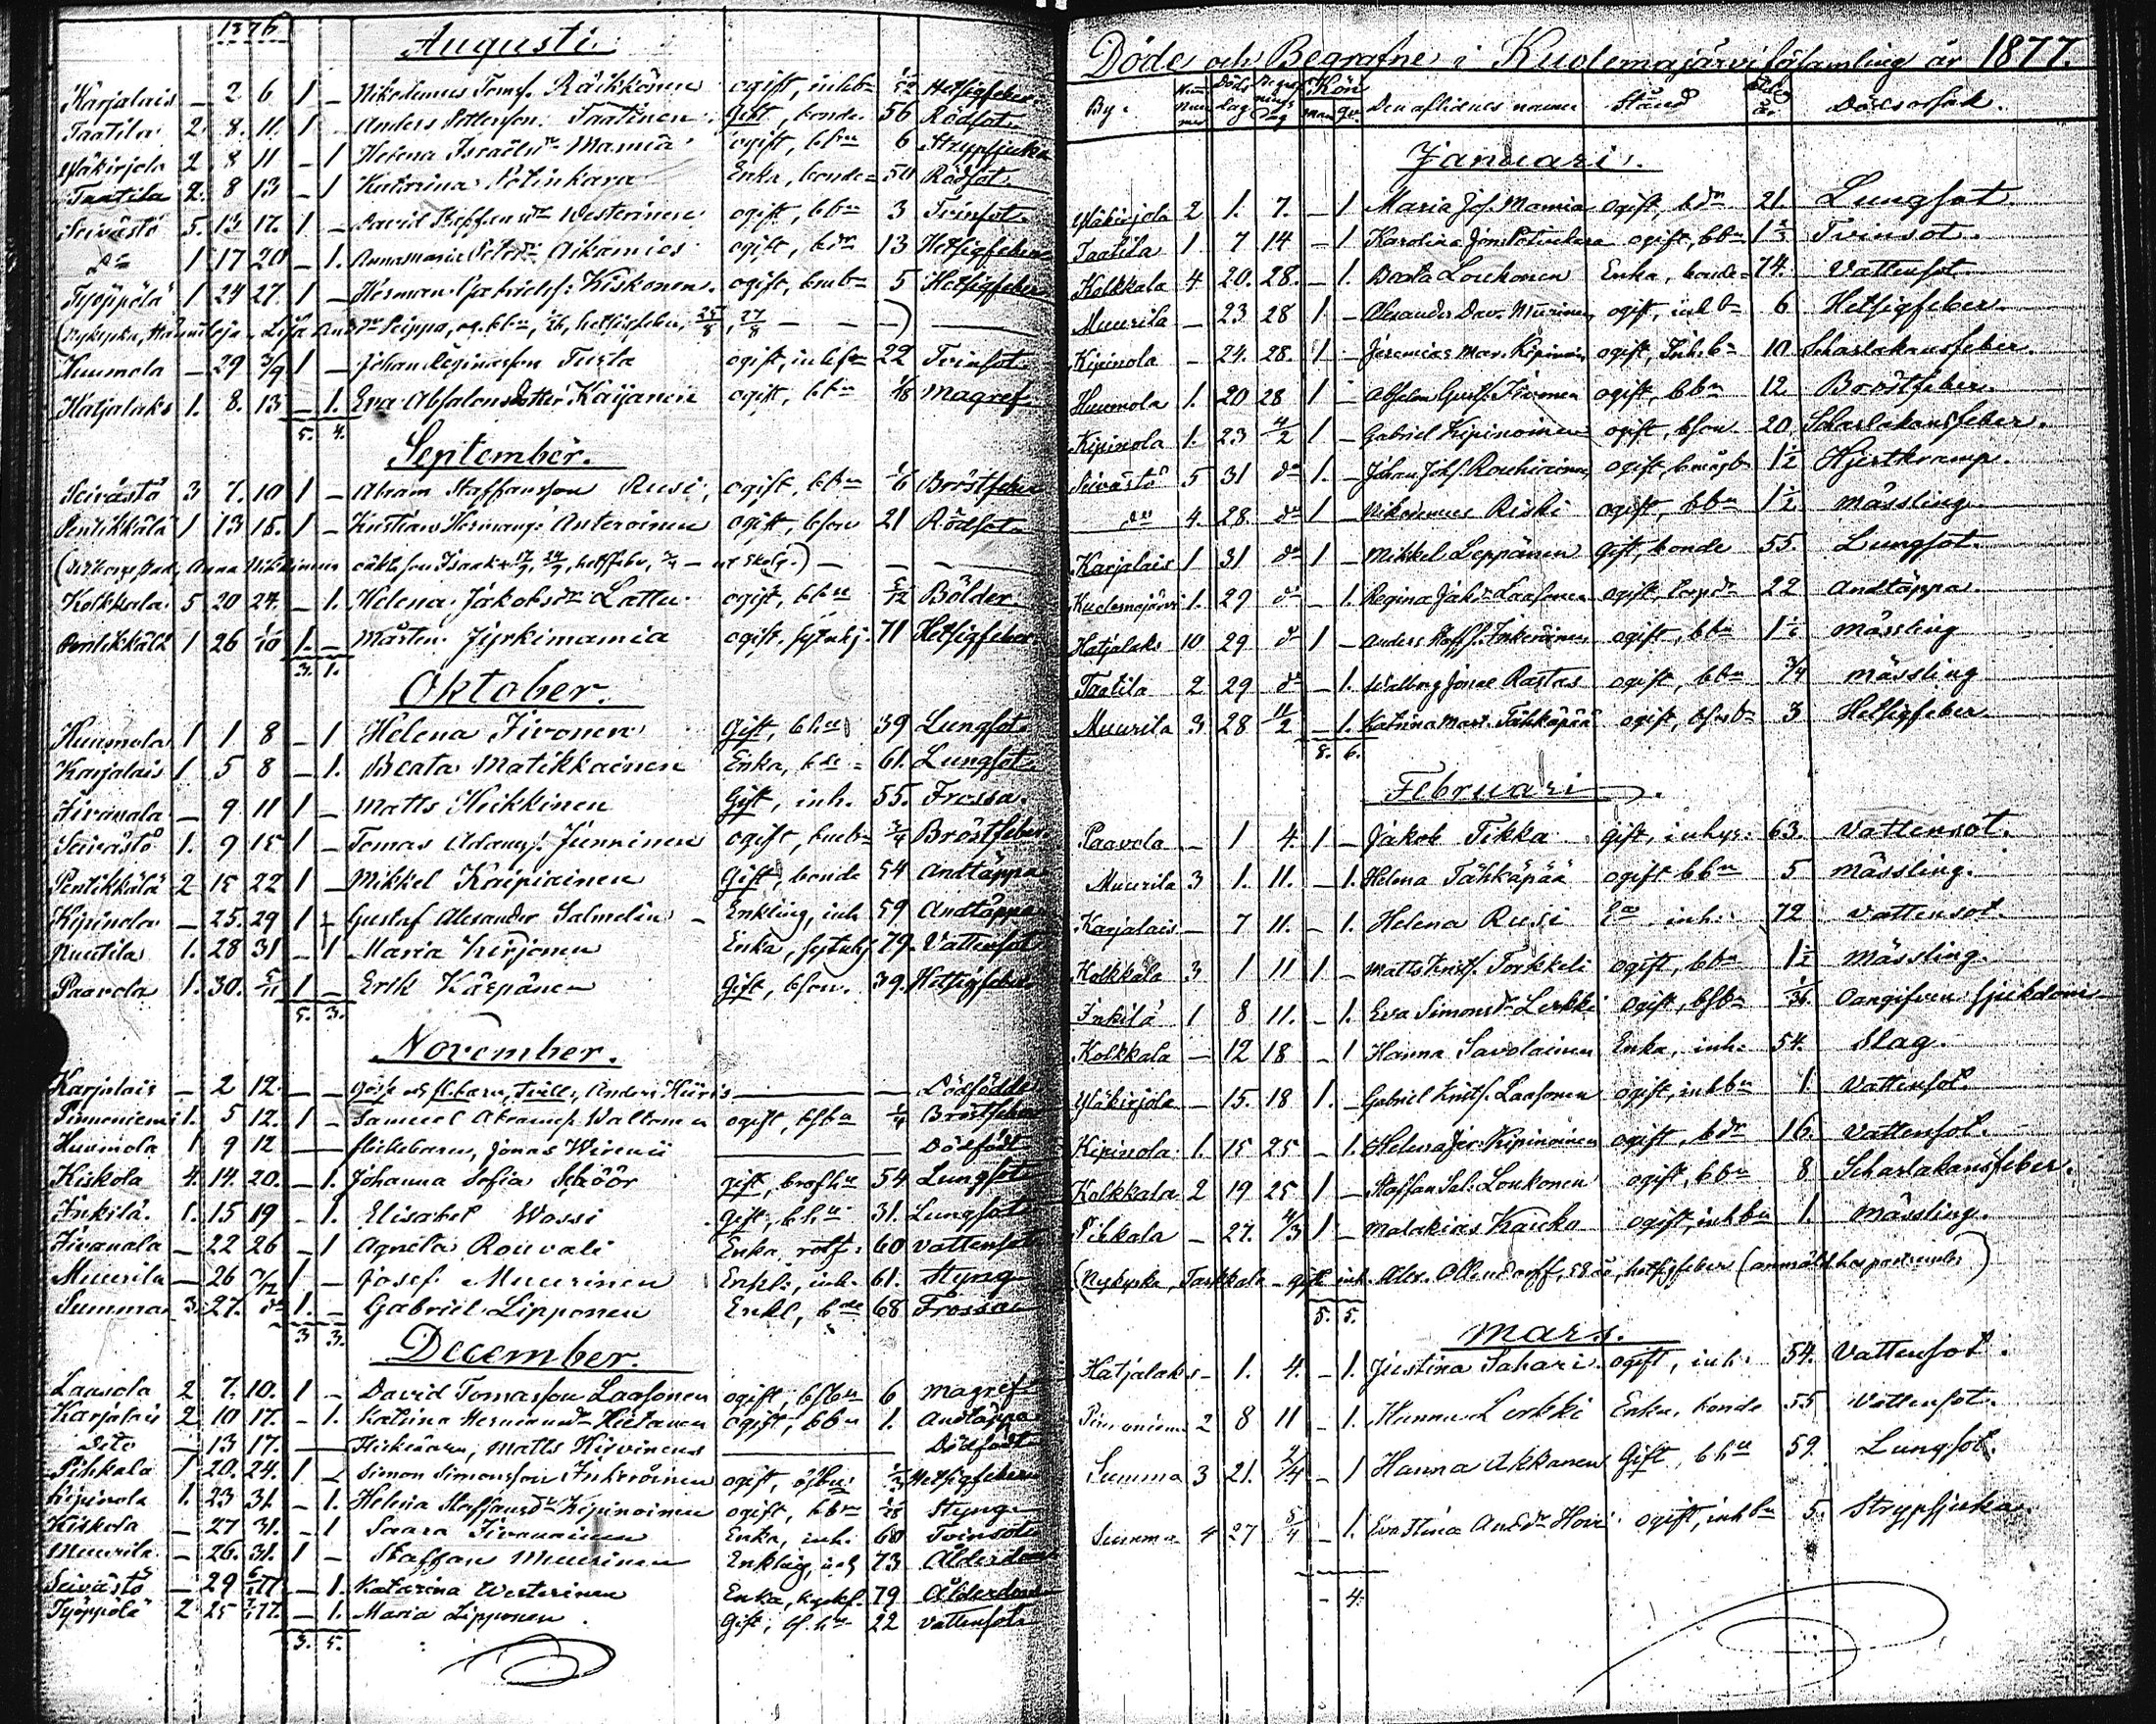 1876
Augusti.
Karjalais – 2 6 1 – Nikodemus Tomsf. Räikkönen ogift, inhbn 5/12 Hetsigfeber
Taatila 2. 8. 11. 1 – Anders Pettersson Taatinen Gift, bonde 56 Rödsot
Yläkirjola 2 8 11 – 1 Helena Israelsdr Mamia ogift, bbn 6 Strypsjuka
Taatila 2. 8 13 – 1 Katarina Potinkara Enka, bonde= 50 Rödsot.
Seivästö 5. 13 17. 1 – David Westerinen ogift, bbn 3 Tvinsot.
do 1 17 20 – 1. Annamaria Petersdr Aikamies ogift, bdr 13 Hetsigfeber
Työppölä 1 24 27. 1 – Herman Gabrielsf. Kiskonen ogift, bmbn 5 Hetsigfeber
(Nykyrka, Lisa Andr Seippo, og. bbn, hetsigfeber, 25/8, 27/8 – – –)
Huumola – 29 3/9 1 – Johan Reginasson Tusla ogift, inhsn 22 Tvinsot
Hatjalaks 1. 8. 13 – 1. Eva Absalonsdotter Kaijanen ogift, bbn 1/8 Magref
5. 4.
September.
Seivästö 3 7. 10 1 – Abram Staffansson Rusi, ogift, bbn 1/6 Bröstfeber
Pentikkälä 1 13 15. 1 – Kustian Hermansf. Anteroinen ogift, bson 21 Rödsot
Kolkkala 5 20 24. – 1. Helena Jakobsdr Lattu ogift, bbn 5/12 Bölder.
Pentikkälä 1 26 1/10 1. – Mårten Jyrkimamia ogift, sytnhj. 71 Hetsigfeber
3. 1.
Oktober.
Huumola 1 1 8 – 1 Helena Iivonen Gift, bhu 39 Lungsot
Karjalais 1 5 8 – 1. Beata Matikkainen Enka, bde= 61. Lungsot.
Iivanala – 9 11 1 – Matts Heikkinen Gift, inh. 55. Frossa.
Seivästö 1. 9 15 1 – Tomas Adamsf. Junninen ogift, bmbn 3/4 Bröstfeber
Pentikkälä 2 15 22 1 – Mikkel Kaipiainen Gift, bonde 54 Andtäppa
Kipinola – 25. 29 1 – Gustaf Alexander Salmelin – Enkling, inh 59 Andtäppa
Ruutila 1. 28 31 – 1 Maria Kirjonen Enka, sytnhj 79. Vattensot
Paavola 1. 30. 5/11 1 – Erik Kärpänen Gift, bson. 39. Hetsigfeber
5. 3.
November.
Karjalais – 2 12. – – goss. o. fl. barn, Tvill. Anders Hiiris Dödfödde
Pinnoniemi 1. 5 12. 1 – Samuel Abramsf. Waltonen ogift, bsbn 1/4 Bröstfeber
Huumola 1 9 12 – flickebarn, Jonas Wirenii Dödfödt
Kiskola 4. 14. 20. – 1. Johanna Sofia Skiöör gift, 54 Lungsot
Inkilä. 1. 15 19 – 1. Elisabet Wossi Gift, bhu 31. Lungsot
Iivanala – 22 26 – 1 Agneta Rouvali Enka, rotf. 60 Vattensot
Muurila – 26 3/12 1 – Josef Muurinen Enkl., inh. 61. Styng
Summa 3. 27. do 1. – Gabriel Lipponen Enkl, bde 68 Frossan
3 3.
December.
Laasola 2 7. 10. 1 – David Tomasson Laasonen ogift, bsbn 6 Magref
Karjalais 2 10 17. – 1. Katrina Hermansdr Hietanen ogift, bbn 1. Andtäppa
Dito – 13 17. – Flickebarn, Matts Kirvinens Dödfödt
Pihkala 1 20. 24. 1 – Simon Simonsson Inkeroinen ogift, Hetsigfeber
Kipinola 1. 23 31. – 1. Helena Staffansdr Kipinoinen ogift, bbn 1/28 Styng
Kiskola – 27 31. – 1 Saara Iivanainen Enka, inh. 60 Tvinsot
Muurila – 26. 31. 1 – Staffan Muurinen Enkling, inh 73 Ålderdom
Seivästö – 29 6/1 77. – 1. Katarina Westerinen Enka, 79 Ålderdom
Työppölä 2 25 77. – 1. Maria Lipponen Gift, bs.hu 22 Vattensot
3. 5.
Döde och Begrafne i Kuolemajärvi församling år 1877.
By. Nummer Döds dag Begrafnings dag Kön man qv. Den aflidnes namn Stånd Ålder år Dödsorsak.
Januari.
Yläkirjola 2 1. 7. – 1 Maria Jos. Mamia ogift, bdr 21. Lungsot
Taatila 1 7 14 – 1 Karolina Jon. Potinkara ogift, bbn Tvinsot.
Kolkkala 4 20. 28. – 1. Beata Loukonen Enka, bonde= 74. Vattensot
Muurila – 23 28 1 – Alexander Dav. Muurinen ogift, inhbn 6 Hetsigfeber
Kipinola – 24. 28. 1 – Jeremias Mar. Kipinoin ogift, Inh.bn 10 Scharlakansfeber.
Huumola 1. 20 28 1 – Absalon Gust. Iivonen ogift, bbn 12 Bröstfeber
Kipinola 1. 23 4/2 1 – Gabriel Kipinoinen ogift, bson 20 Scharlakansfeber.
Seivästö 5 31 do 1. – Johan Johf. Rouhiainen ogift, 1½ Hjertkramp.
do 4. 28. do 1 – Nikodemus Riski ogift, bbn 1½ Mässling
Karjalais 1 31 do 1 – Mikkel Leppänen Gift, bonde 55. Lungsot.
Kuolemajärvi 1. 29 do – 1. Regina Jakdr Laasonen ogift, torpdr 22 Andtäppa.
Hatjalaks 10 29 do 1 – Anders Staff. Inkeroinen ogift, bbn Mässling
Taatila 2 29 do – 1. Walborg Jonae Rastas ogift, bbn 3/4 Mässling
Muurila 3 28 11/2 – 1. Katrina Mart. Tähkäpää ogift, 3 Hetsigfeber.
8. 6.
Februari.
Paavola – 1 4. 1 – Jakob Tikka gift, inhys: 63. Vattensot.
Muurila 3 1. 11. – 1. Helena Tähkäpää ogift bbn 5 Mässling.
Karjalais – 7 11. – 1. Helena Rusi Ea inh. 72 Vattensot.
Kolkkala 3 1 11 1 – Matts Kristf. Torkkeli ogift, bbn Mässling.
Inkilä 1 8 11. – 1. Eva Simonsdr Lerkki ogift, bsbn 1/36. Oangifven sjukdom
Kolkkala – 12 18 – 1 Hanna Savolainen Enka, inh. 54. Slag.
Yläkirjola – 15. 18 1. – Gabriel Kristf. Laasonen ogift, inhbn 1. Vattensot.
Kipinola 1. 15 25 – 1. Helena Jer. Kipinoinen ogift, bdr 16. Vattensot.
Kolkkala 2 19 25 1 – Staffan Sal. Loukonen ogift, bbn 8 Scharlakansfeber.
Pihkala – 27. 4/3 1 – Malakias Kauko ogift, inhbn 1. Mässling.
(Nykyrka, Taskkala – gift inh. Alex. Ollendorff, 58 år, hetsigfeber (anmäldt)
5. 5.
Mars.
Hatjalaks – 1. 4. – 1. Justina Sahari ogift, inh. 54. Vattensot.
2 8 11 – 1. Hanna Lerkki Enka, bonde 55 Vattensot.
Summa 3 21. 2/4 – 1 Hanna Akkanen Gift, bhu 59. Lungsot.
Summa 4 27 8/4 – 1. Eva Stina Andr Hovi ogift, inhbn 5. Strypsjuka
– 4.